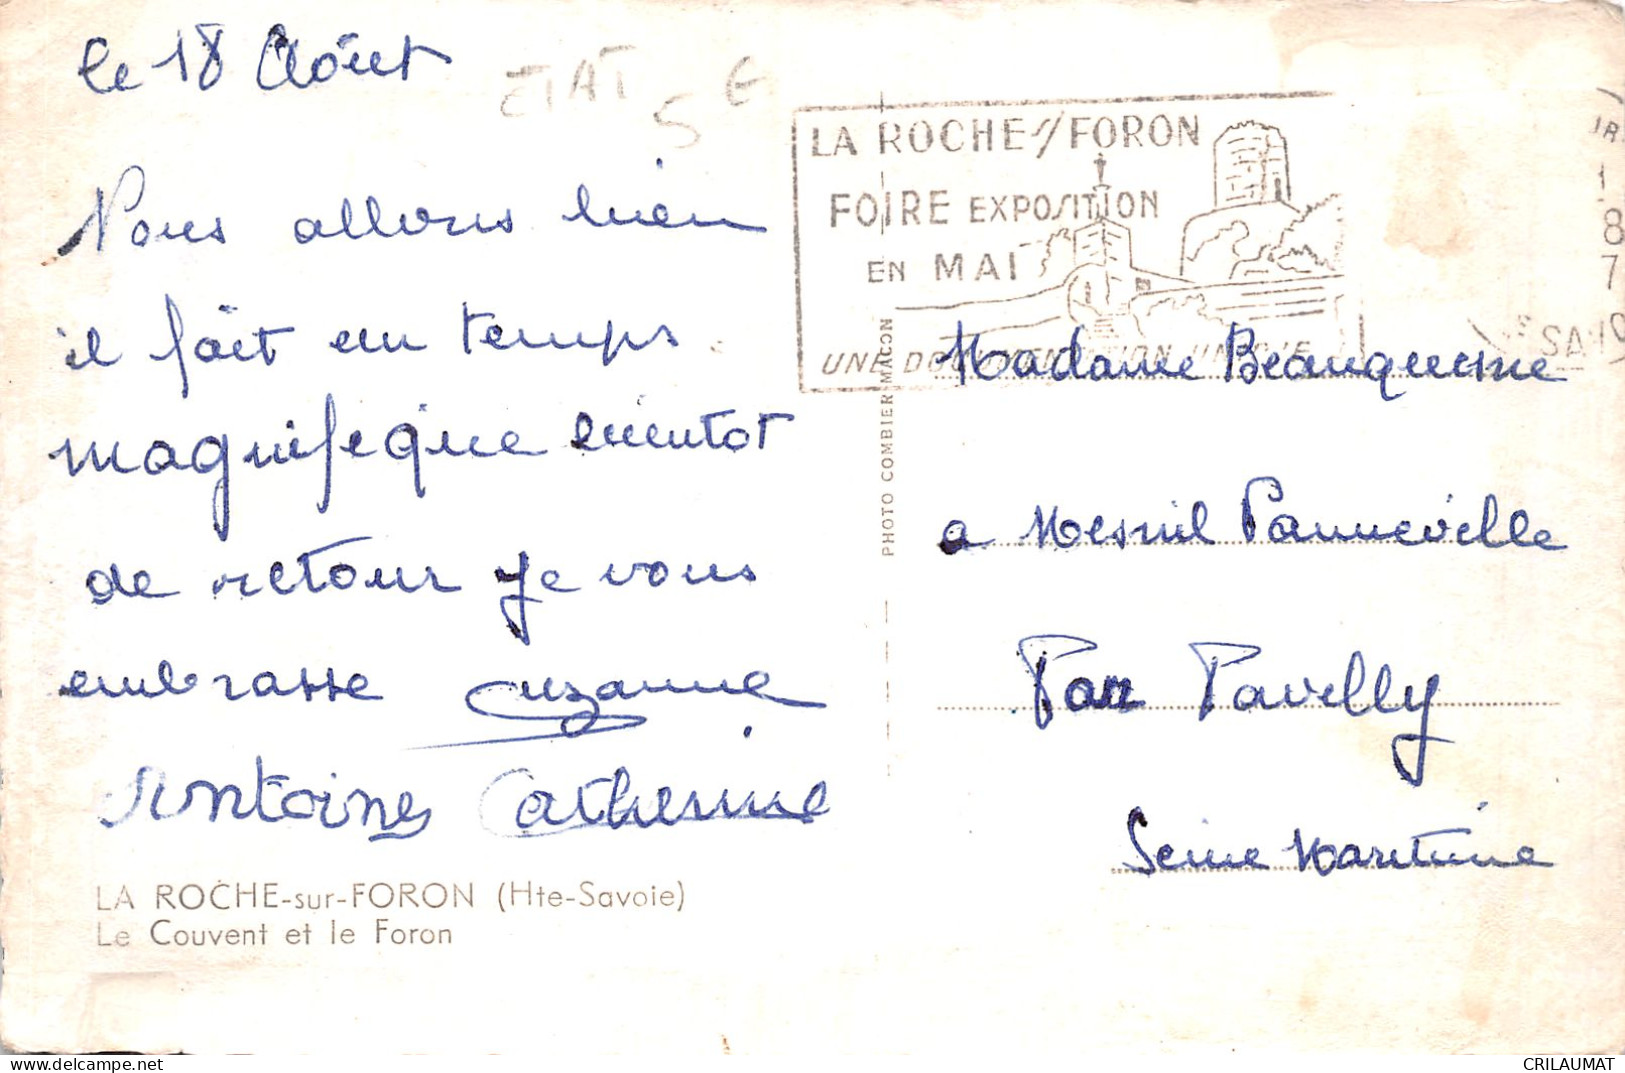 le 18 Août
ETAT 5 €
Nous allons bien
il fait un temps
magnifique bientot
de retour je vous
embrasse Suzanne
Antoine Catherine
LA ROCHE-sur-FORON (Hte-Savoie)
Le Couvent et le Foron
PHOTO COMBIER MACON
LA ROCHE S/ FORON
FOIRE EXPOSITION
EN MAI
UNE DOCUMENTATION
Madame Beauquesne
a Mesnil Panneville
Par Pavilly
Seine Maritime
8
7
www.delcampe.net
CRILAUMAT